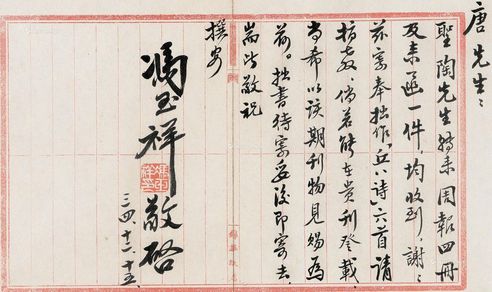 唐先生：
聖陶先生轉來周報四冊
及來函一件，均收到，謝：
茲寄奉拙作“丘八詩”六首請
指教，倘若能在貴刊登載，
尚希以該期刊物見賜為
荷。拙書待寄到後即寄去。
耑此敬祝
撰安
馮玉祥敬啓
三四、十二、十五、